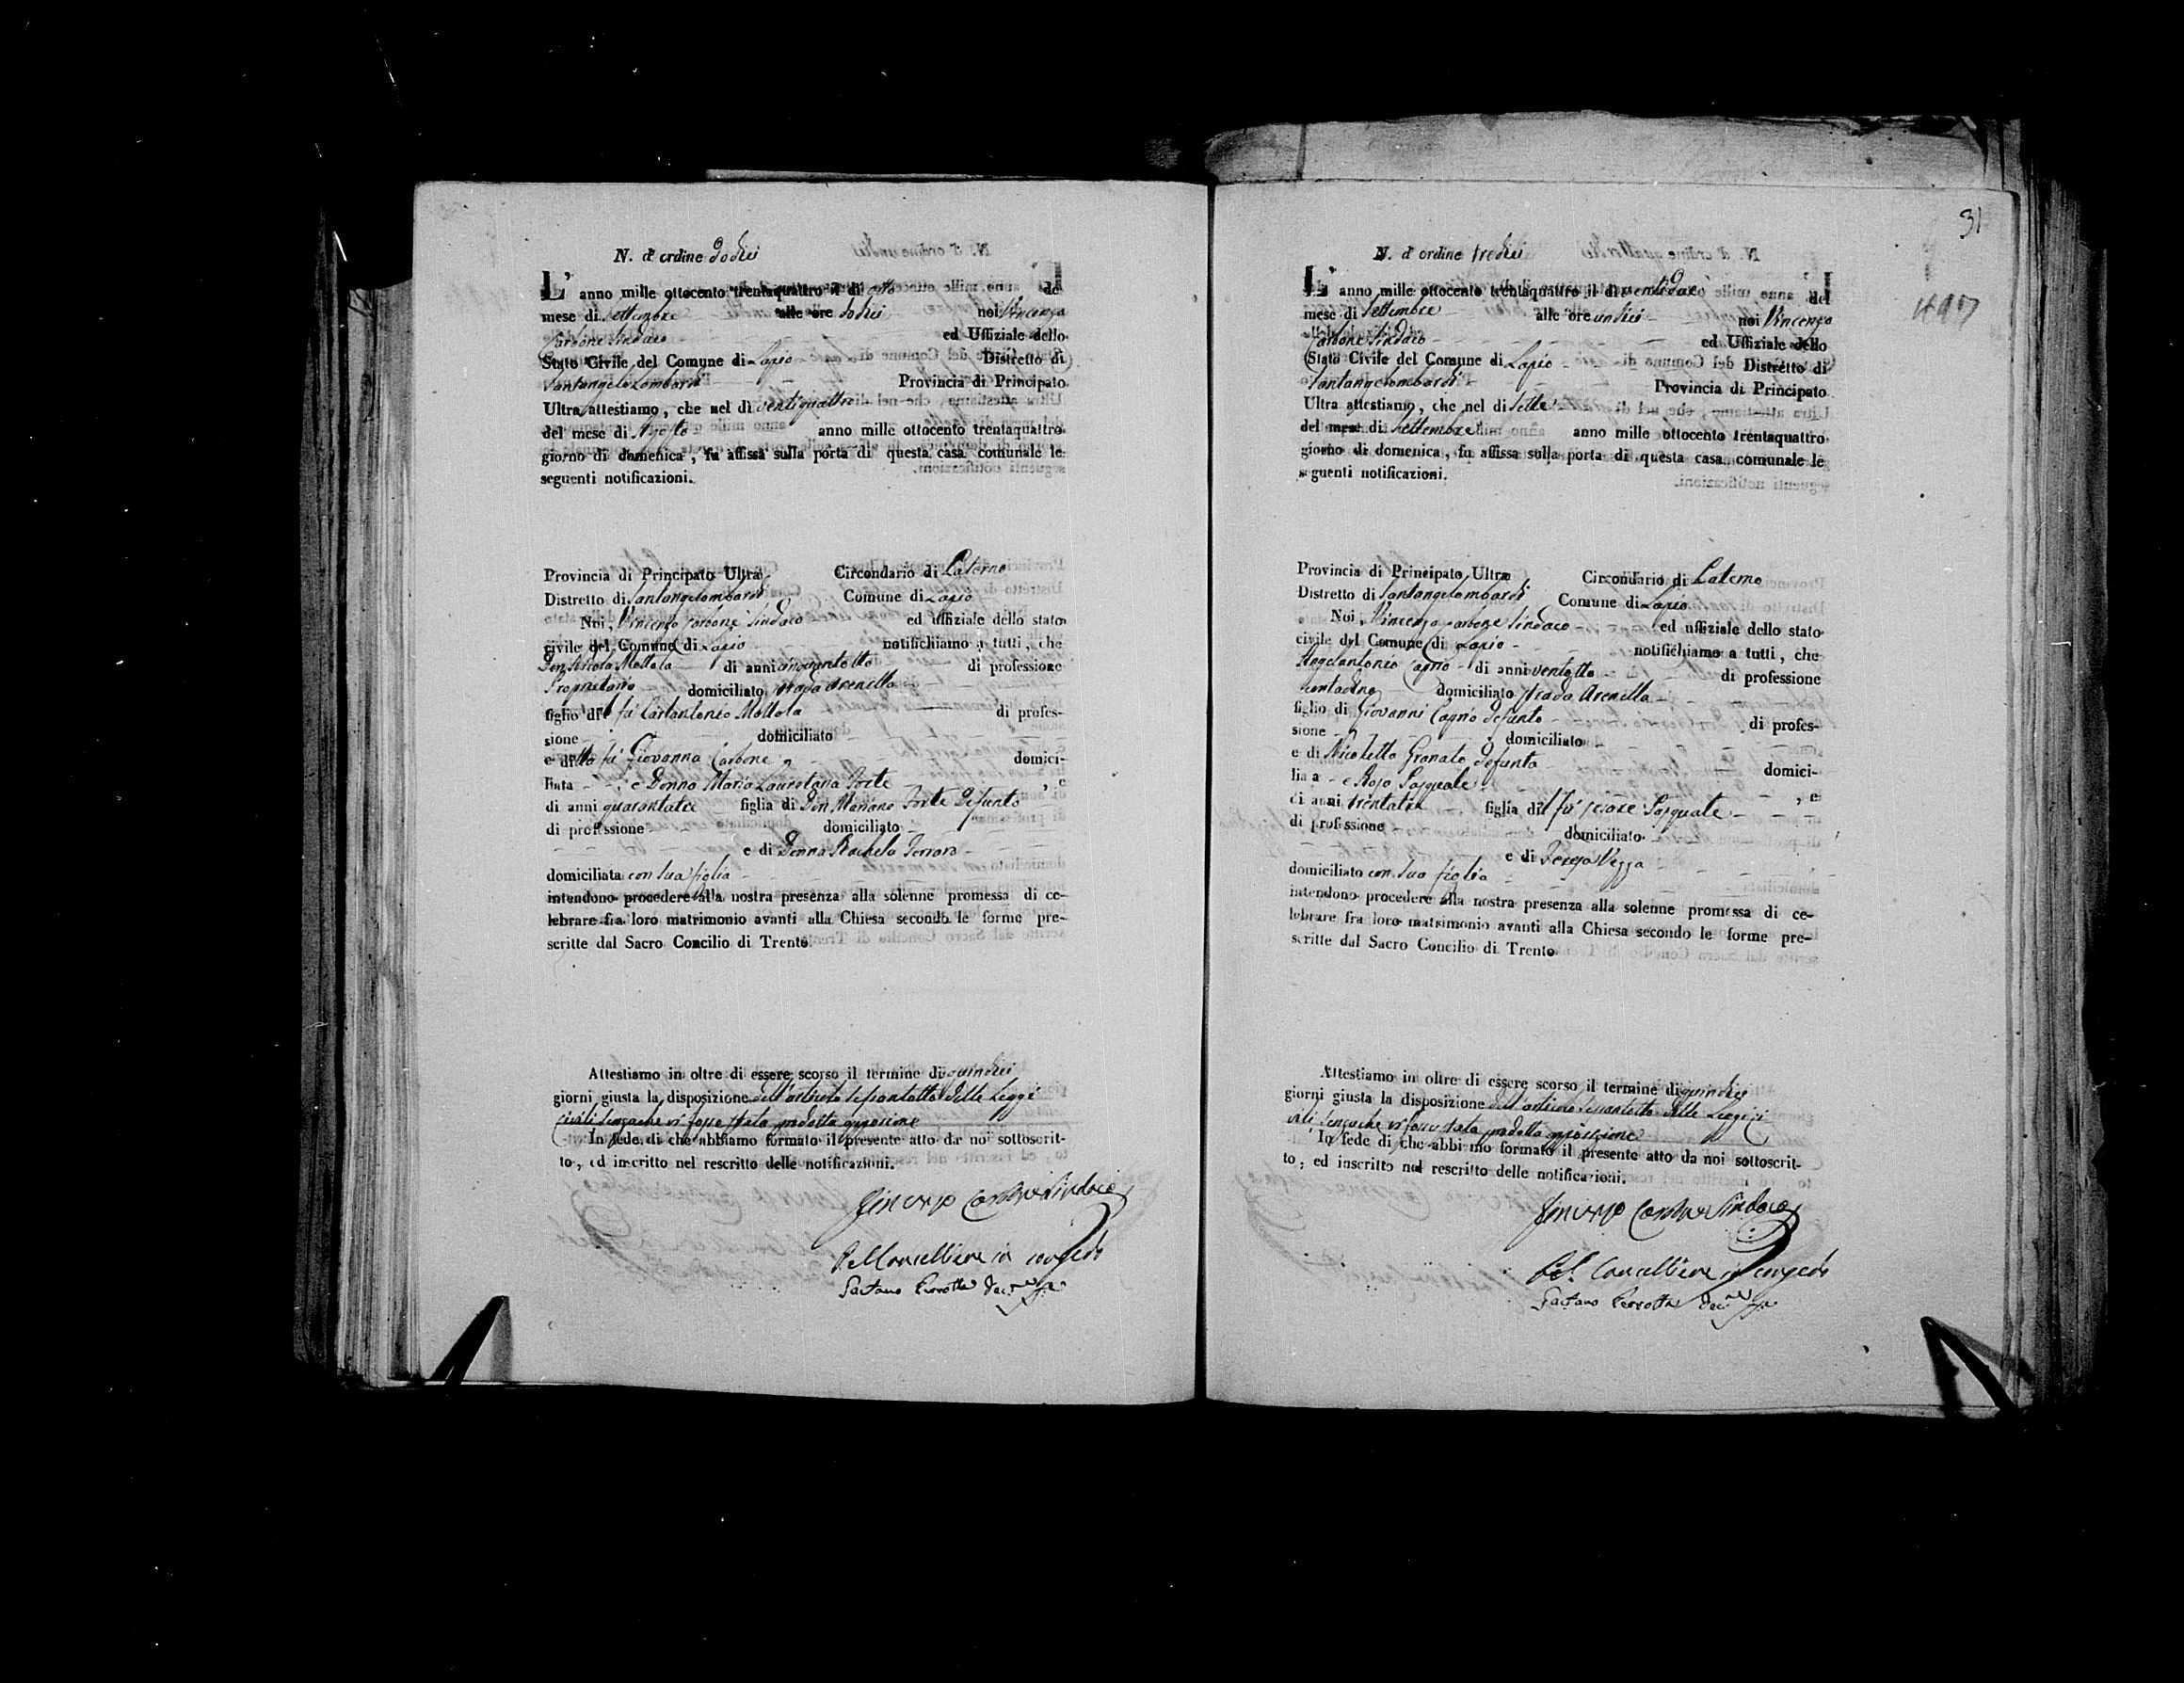 N. d'ordine dodici
L'anno mille ottocento trentaquattro il dì otto del
mese di Settembre alle ore dodici noi Vincenzo
Carbone Sindaco ed Uffiziale dello
Stato Civile del Comune di Lapio Distretto di
Santangelo Lombardi Provincia di Principato
Ultra attestiamo, che nel dì ventiquattro
del mese di Agosto anno mille ottocento trentaquattro
giorno di domenica, fu affissa sulla porta di questa casa comunale le
seguenti notificazioni.
Provincia di Principato Ultra Circondario di Paterno
Distretto di Santangelombardi Comune di Lapio
Noi, Vincenzo Carbone Sindaco ed uffiziale dello stato
civile del Comune di Lapio notifichiamo a tutti, che
Don Nicola Mottola di anni cinquantotto di professione
Proprietario domiciliato strada Arenella
figlio del fu Carlantonio Mottola di profes-
sione domiciliato
e della fu Giovanna Carbone domici-
liata e Donna Maria Lauretana Forte, e
di anni quarantatre figlia di Don Mariano Forte defunto
di professione domiciliato
e di Donna Rachela
domiciliata con sua figlia
intendono procedere alla nostra presenza alla solenne promessa di ce-
lebrare fra loro matrimonio avanti alla Chiesa secondo le forme pre-
scritte dal Sacro Concilio di Trento
Attestiamo in oltre di essere scorso il termine di quindici
giorni giusta la disposizione dell'articolo sessantotto delle Leggi
Civili senzache vi fosse stata prodotta opposizione
In fede di che abbiamo formato il presente atto da noi sottoscrit-
to, ed inscritto nel rescritto delle notificazioni.
Vincenzo Carbone Sindaco
Pel Cancelliere in congedo
Gaetano Perrotta
31
N. d'ordine tredici
L'anno mille ottocento trentaquattro il dì ventidue del
mese di Settembre alle ore undici noi Vincenzo
Carbone Sindaco ed Uffiziale dello
Stato Civile del Comune di Lapio Distretto di
Santangelombardi Provincia di Principato
Ultra attestiamo, che nel dì sette
del mese di Settembre anno mille ottocento trentaquattro
giorno di domenica, fu affissa sulla porta di questa casa comunale le
seguenti notificazioni.
Provincia di Principato Ultra Circondario di Paterno
Distretto di Santangelombardi Comune di Lapio
Noi, Vincenzo Carbone Sindaco ed uffiziale dello stato
civile del Comune di Lapio notifichiamo a tutti, che
Angelantonio Cagno di anni ventotto di professione
contadino domiciliato strada Arenella
figlio di Giovanni Cagno defunto di profes-
sione domiciliato
e di Nicoletta Granato defunta domici-
liata e Rosa Pasquale, e
di anni trentatre figlia del fu Pasquale
di professione domiciliato
e di Teresa
domiciliato con sua figlia
intendono procedere alla nostra presenza alla solenne promessa di ce-
lebrare fra loro matrimonio avanti alla Chiesa secondo le forme pre-
scritte dal Sacro Concilio di Trento
Attestiamo in oltre di essere scorso il termine di quindici
giorni giusta la disposizione dell'articolo sessantotto delle Leggi Ci
vili senzache vi fosse stata prodotta opposizione
In fede di che abbiamo formato il presente atto da noi sottoscrit-
to, ed inscritto nel rescritto delle notificazioni.
Vincenzo Carbone Sindaco
Pel Cancelliere in congedo
Gaetano Perrotta